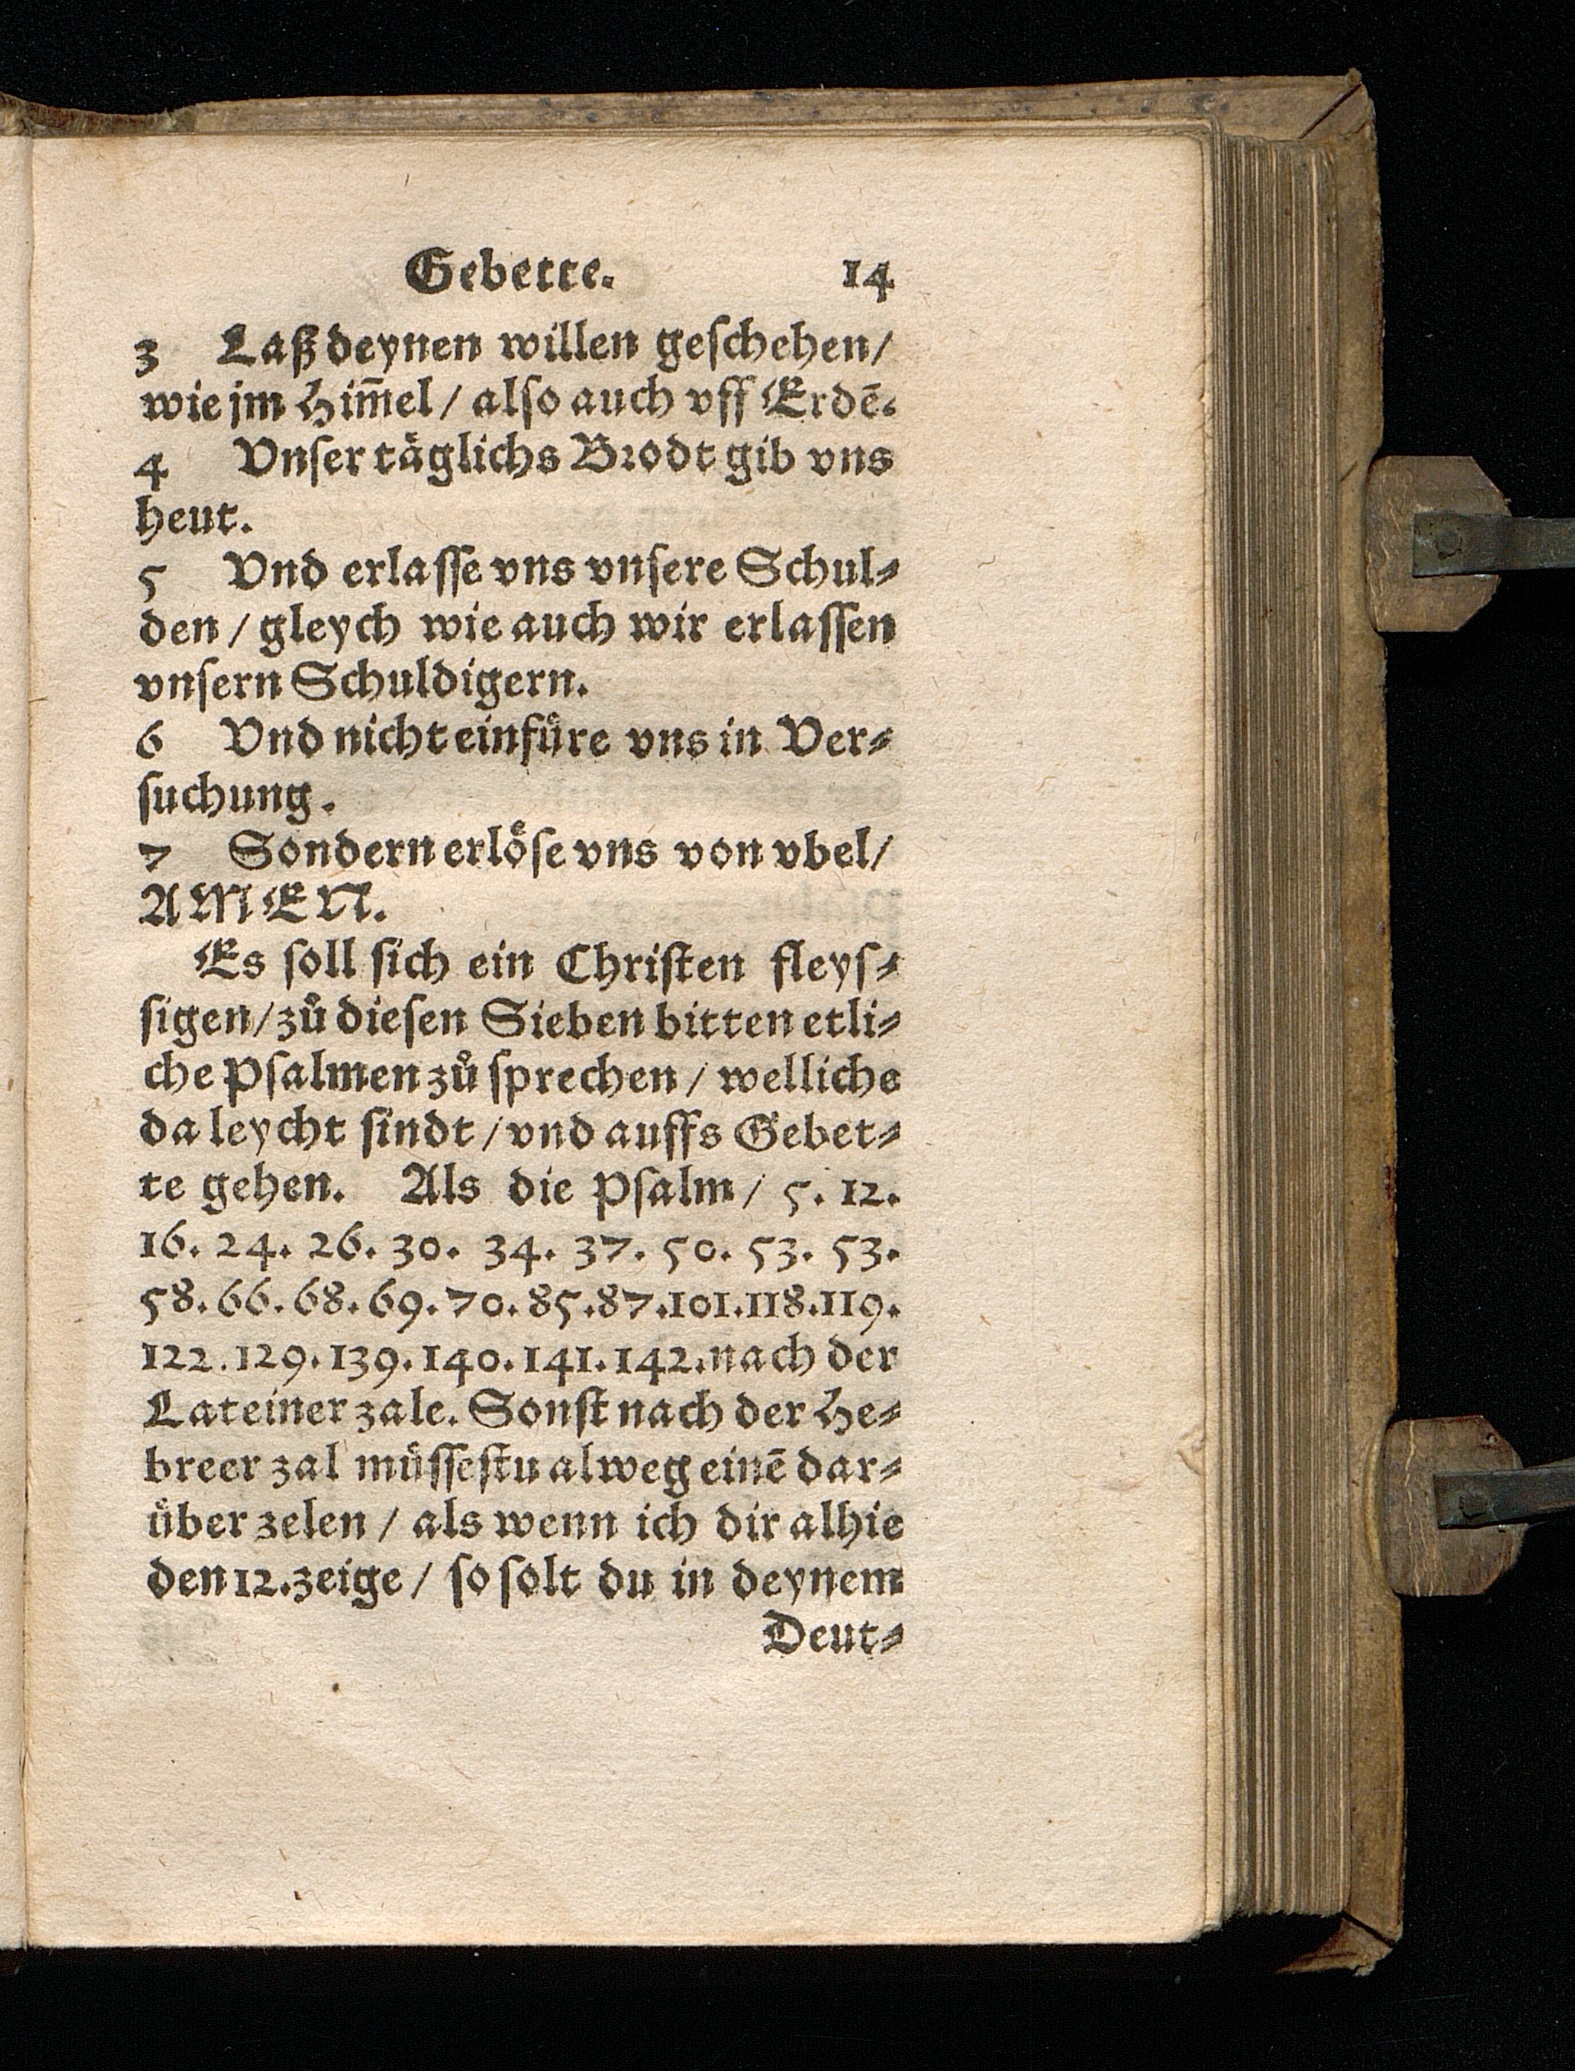 Gebette. 14
3 Laß deynen willen geſchehen/
wie jm Him̄el / alſo auch vff Erdē.
4 Vnſer taͤglichs Brodt gib vns
heut.
5 Vnd erlaſſe vns vnſere Schul⸗
den / gleych wie auch wir erlaſſen
vnſern Schuldigern.
6 Vnd nicht einfuͤre vns in Ver⸗
ſuchung.
7 Sondern erloͤſe vns von vbel/
AMEN.
Es ſoll ſich ein Chriſten fleyſ⸗
ſigen/zuͦ dieſen Sieben bitten etli⸗
che Pſalmen zuͦ ſprechen / welliche
da leycht ſindt / vnd auffs Gebet⸗
te gehen. Als die Pſalm / 5. 12.
16. 24. 26. 30. 34. 37. 50. 53. 53.
58. 66. 68. 69. 70. 85. 87. 101. 118. 119.
122. 129. 139. 140. 141. 142. nach der
Lateiner zale. Sonſt nach der He⸗
breer zal muͤſſeſtu alweg einē dar⸗
uͤber zelen / als wenn ich dir alhie
den 12. zeige / ſo ſolt du in deynem
Deut⸗